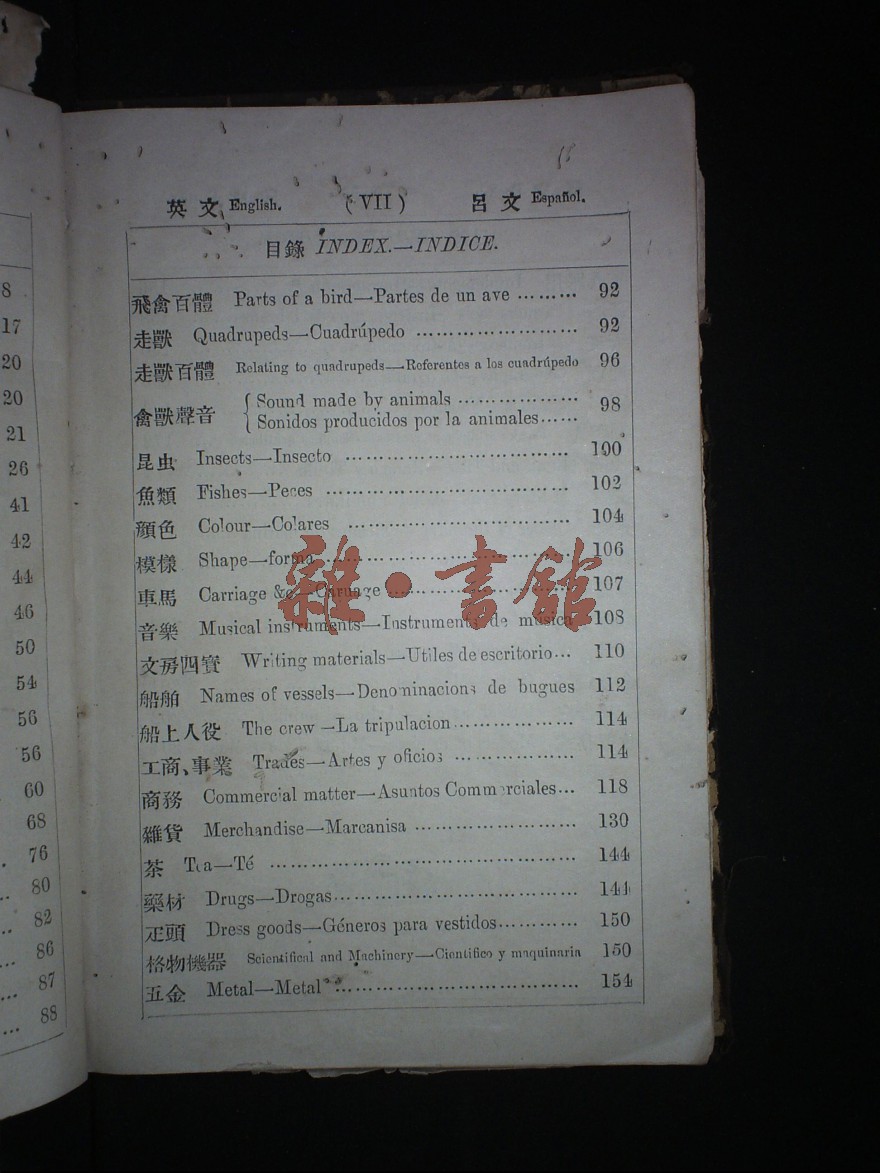 英文 English. ( VII ) 呂文 Español.
目錄 INDEX.—INDICE.
飛禽百體 Parts of a bird—Partes de un ave ......... 92
走獸 Quadrupeds—Cuadrúpedo ........................ 92
走獸百體 Relating to quadrupeds—Referentes a los cuadrúpedo 96
禽獸聲音 { Sound made by animals .................. 98
Sonidos producidos por la animales......
昆虫 Insects—Insecto ................................. 100
魚類 Fishes—Peces .................................... 102
顏色 Colour—Colares ................................. 104
模樣 Shape—forma .................................... 106
車馬 Carriage &c—Carnage ........................... 107
音樂 Musical instruments—Instruments de musica 108
文房四寳 Writing materials—Utiles de escritorio... 110
船舶 Names of vessels—Denominacions de bugues 112
船上人役 The crew—La tripulacion.................. 114
工商、事業 Trades—Artes y oficios .................. 114
商務 Commercial matter—Asuntos Commerciales... 118
雜貨 Merchandise—Marcanisa ........................ 130
茶 Tea—Té ............................................. 144
藥材 Drugs—Drogas.................................... 144
疋頭 Dress goods—Géneros para vestidos............ 150
格物機器 Scientifical and Machinery—Cientifico y maquinaria 150
五金 Metal—Metal .................................... 154
雜·書館
8
17
20
20
21
26
41
42
44
46
50
54
56
56
60
68
76
80
82
86
87
88